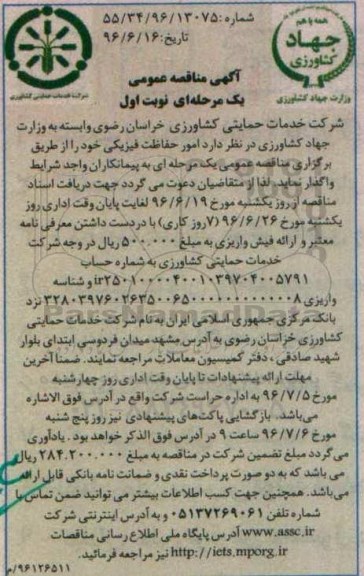 شماره: ۵۵/۳۴/۹۶/۱۳۰۷۵
تاریخ: ۹۶/۶/۱۶
همه با هم
جهاد
کشاورزی
وزارت جهاد کشاورزی
شرکت خدمات حمایتی کشاورزی
آگهی مناقصه عمومی
یک مرحله‌ای نوبت اول
شرکت خدمات حمایتی کشاورزی خراسان رضوی وابسته به وزارت
جهاد کشاورزی در نظر دارد امور حفاظت فیزیکی خود را از طریق
برگزاری مناقصه عمومی یک مرحله ای به پیمانکاران واجد شرایط
واگذار نماید. لذا از متقاضیان دعوت می گردد جهت دریافت اسناد
مناقصه از روز یکشنبه مورخ ۹۶/۶/۱۹ لغایت پایان وقت اداری روز
یکشنبه مورخ ۹۶/۶/۲۶ (۷روز کاری) با در دست داشتن معرفی نامه
معتبر و ارائه فیش واریزی به مبلغ ۵۰۰،۰۰۰ ریال در وجه شرکت
خدمات حمایتی کشاورزی به شماره حساب
و شناسه
واریزی نزد
بانک مرکزی جمهوری اسلامی ایران به نام شرکت خدمات حمایتی
کشاورزی خراسان رضوی به آدرس مشهد میدان فردوسی ابتدای بلوار
شهید صادقی، دفتر کمیسیون معاملات مراجعه نمایند. ضمنا آخرین
مهلت ارائه پیشنهادات تا پایان وقت اداری روز چهارشنبه
مورخ ۹۶/۷/۵ به اداره حراست شرکت واقع در آدرس فوق الاشاره
می‌باشد. بازگشایی پاکت‌های پیشنهادی نیز روز پنج شنبه
مورخ ۹۶/۷/۶ ساعت ۹ در آدرس فوق الذکر خواهد بود. یادآوری
می‌گردد مبلغ تضمین شرکت در مناقصه به مبلغ ۲۸۴،۲۰۰،۰۰۰ ریال
می باشد که به دو صورت پرداخت نقدی و ضمانت نامه بانکی قابل ارائه
می‌باشد. همچنین جهت کسب اطلاعات بیشتر می توانید ضمن تماس با
شماره تلفن ۰۵۱۳۷۲۶۹۰۶۱ و به آدرس اینترنتی شرکت
www.assc.ir آدرس پایگاه ملی اطلاع رسانی مناقصات
http://iets.mporg.ir نیز مراجعه فرمائید.
۹۶۱۲۶۵۱۱/م